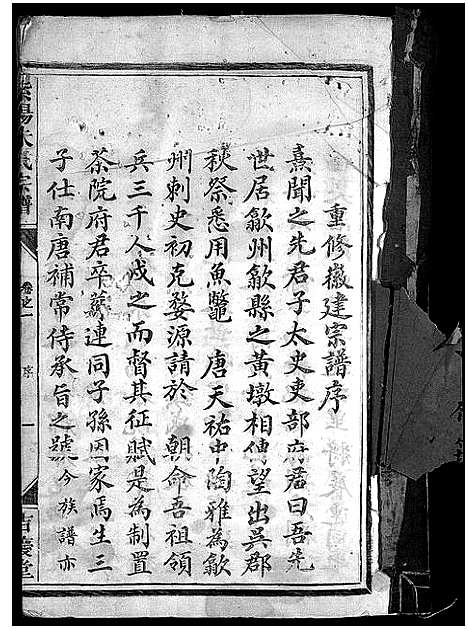 重修徽建宗譜序
熹聞之先君子太史吏部府君曰吾先
世居歙州歙縣之黃墩相傳望出吳郡
秋祭悉用魚鼈　唐天祐中陶雅為歙
州刺史初克婺源請於　朝命吾祖領
兵三千人戍之而督其征賦是為制置
茶院府君卒葬連同子孫因家焉生三
子仕南唐補常侍承旨之號今族譜亦
紫陽朱氏宗譜
卷之一
序
一